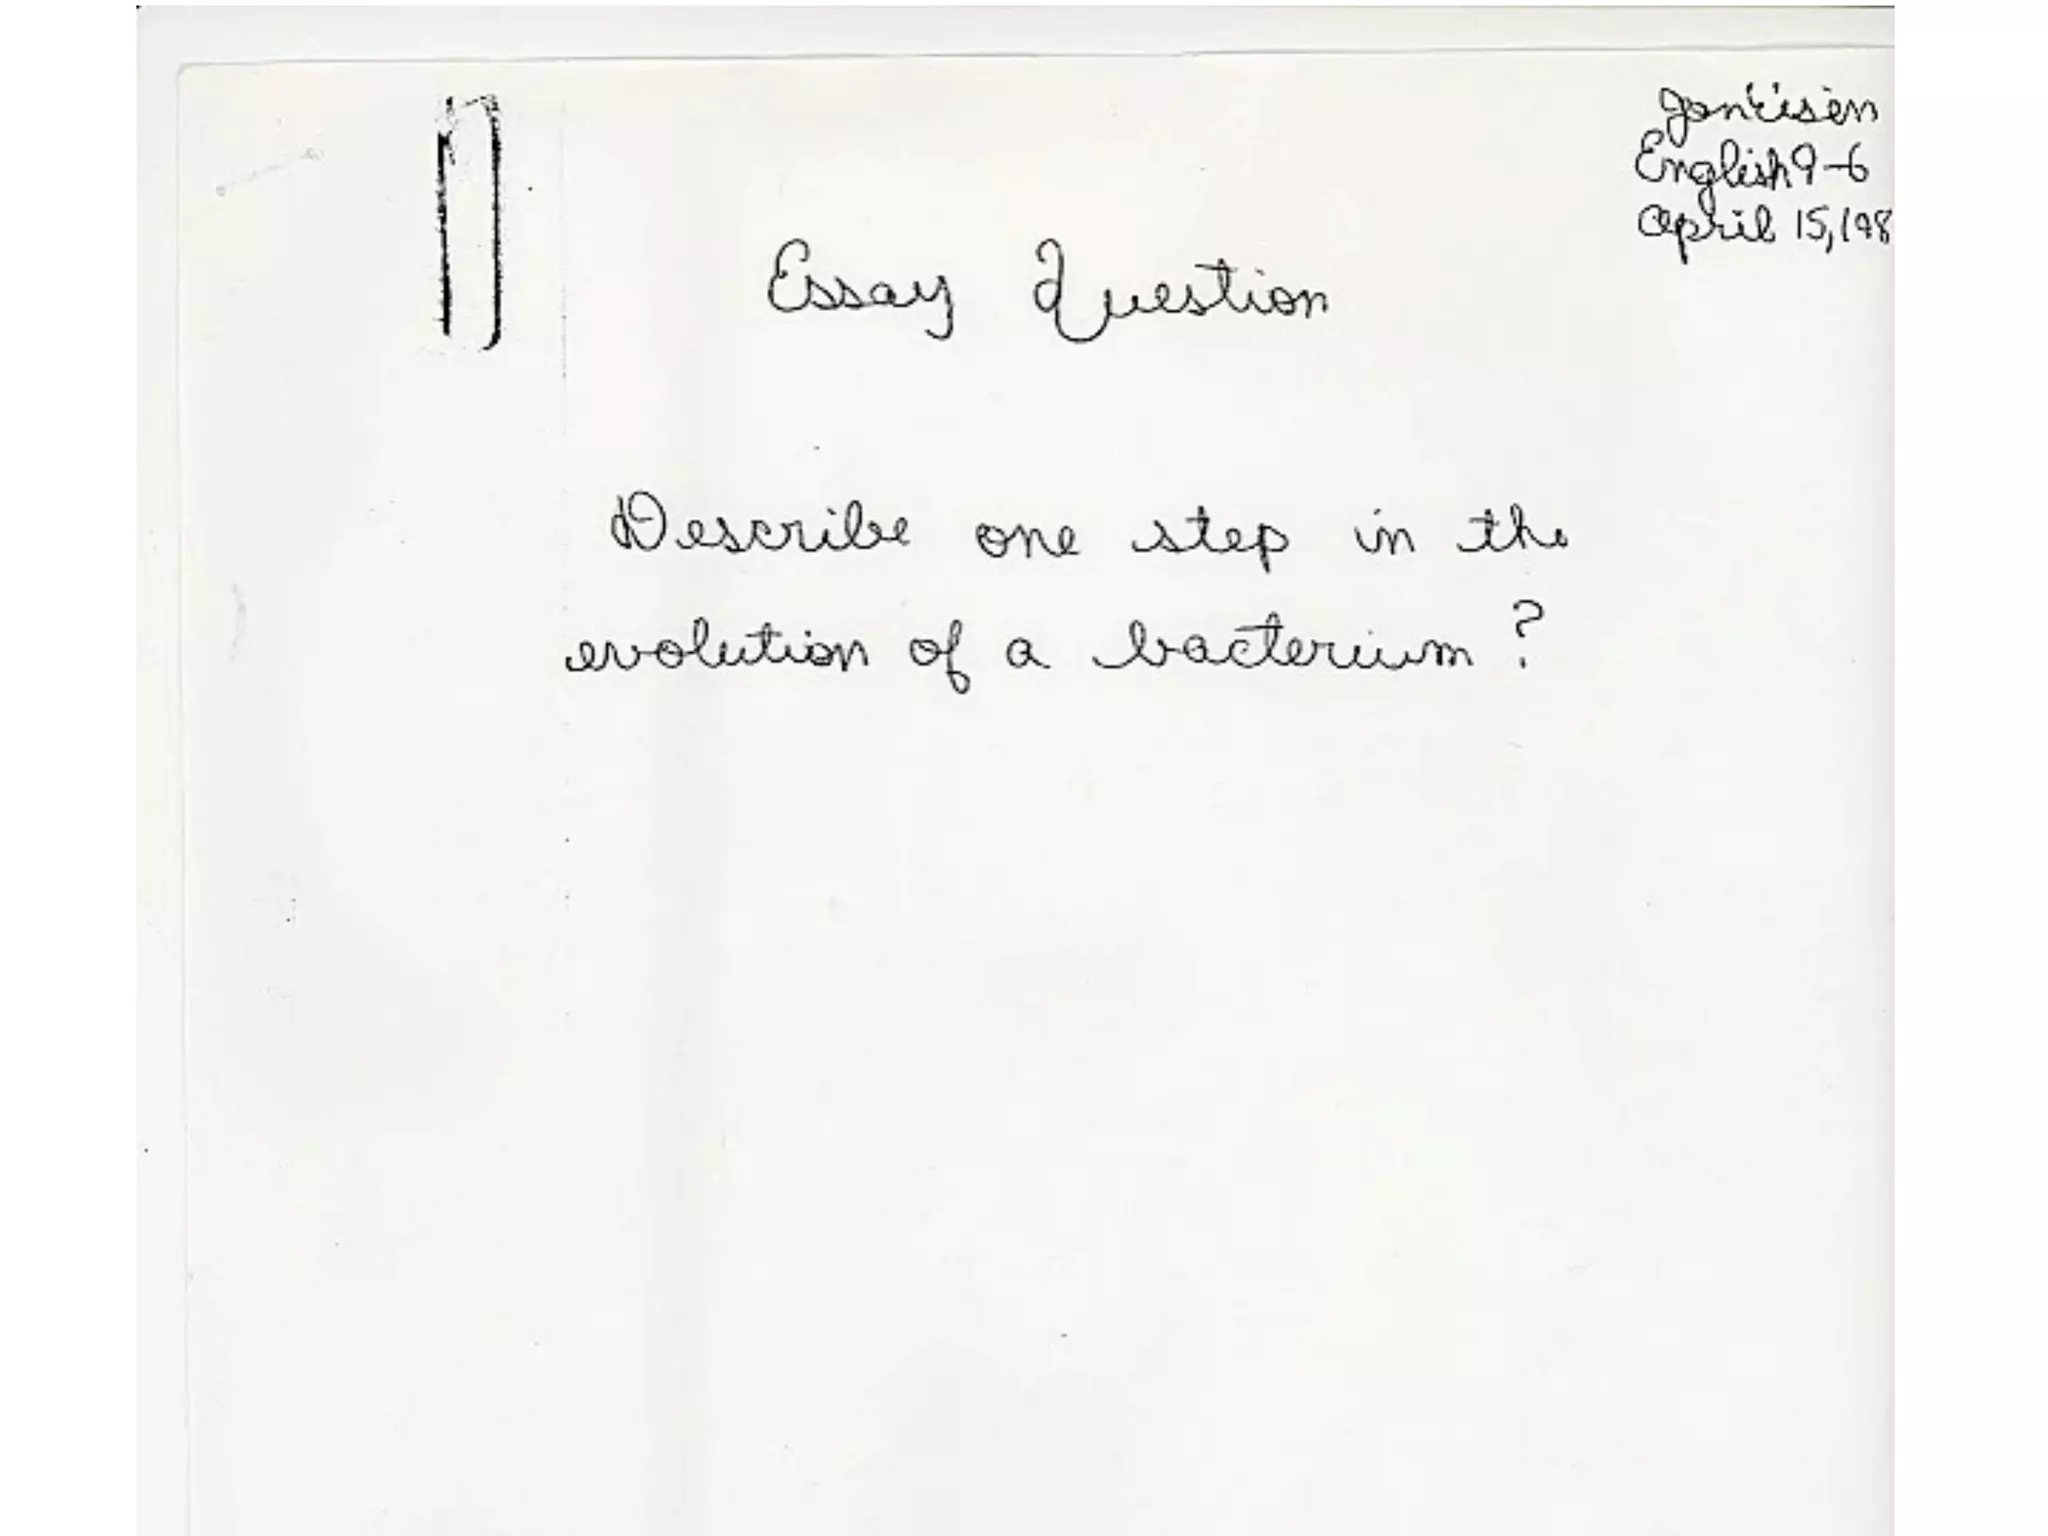 Jon Eisen
English 9-6
April 15, 198
Essay Question
Describe one step in the
evolution of a bacterium?